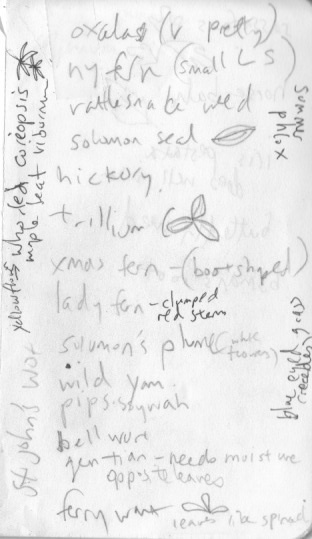 oxalas (v pretty)
ny fern (small LS)
rattlesnake weed
solomon seal
hickory
trillium
xmas fern - (boot shaped)
lady fern - clumped
red stem
solomon's plume (
flowers)
wild yam
pipsissywah
bell wort
gentian - needs moisture
opposite leaves
ferry
leaves like spinach
St John's wort
yellow whorled coreopsis
maple leaf viburnum
phlox
blue eyed grass